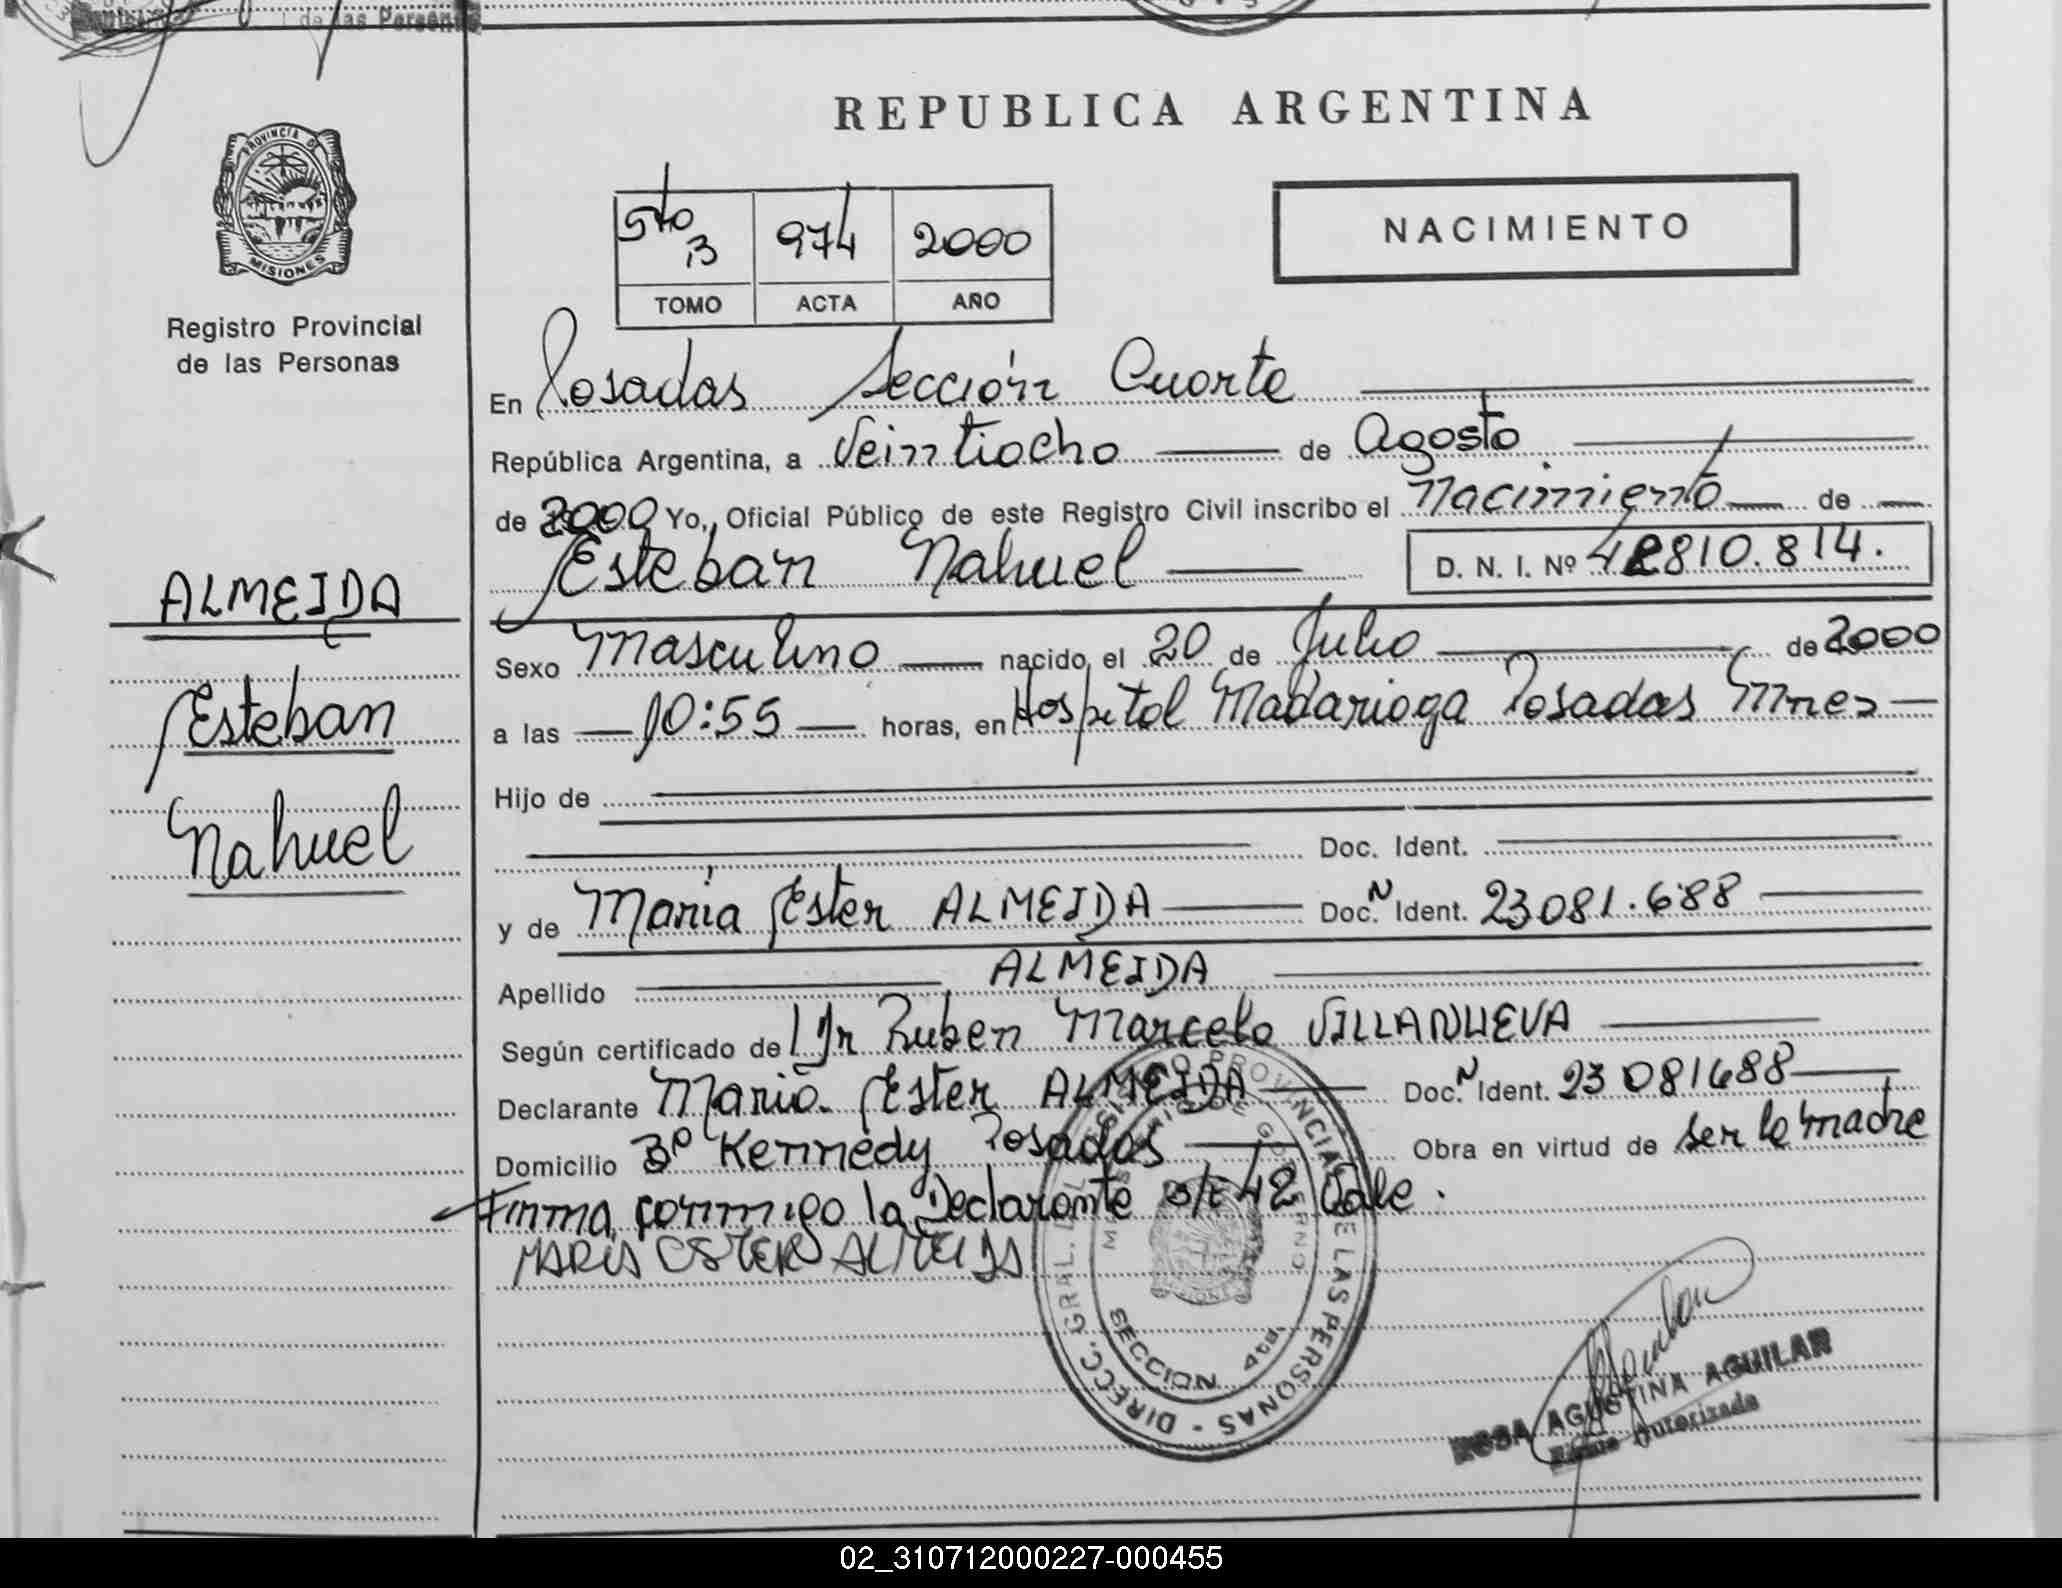 de las Personas
REPUBLICA ARGENTINA
PROVINCIA DE
MISIONES
Registro Provincial
de las Personas
5to B 974 2000
TOMO ACTA AÑO
NACIMIENTO
En Posadas Sección Cuarta
República Argentina, a Veintiocho de Agosto
de 2000 Yo, Oficial Público de este Registro Civil inscribo el Nacimiento de
Esteban Nahuel D. N. I. Nº 42810.814.
ALMEIDA
Esteban
Nahuel
Sexo Masculino nacido el 20 de Julio de 2000
a las 10:55 horas, en Hospital Madariaga Posadas Mnes
Hijo de
Doc. Ident.
y de Maria Ester ALMEIDA Doc.N Ident. 23081.688
Apellido ALMEIDA
Según certificado de Dr Ruben Marcelo VILLANUEVA
Declarante Maria Ester ALMEIDA Doc.N Ident. 23081688
Domicilio Bº Kennedy Posadas Obra en virtud de ser la madre
Firma conmigo la Declarante s/r 42 Vale.
MARIA ESTER ALMEIDA
DIRECC. GRAL. DEL REGISTRO PROVINCIAL DE LAS PERSONAS
MINISTERIO DE GOBIERNO
MISIONES
SECCION 4ta.
ROSA AGUSTINA AGUILAR
Firma Autorizada
02_310712000227-000455